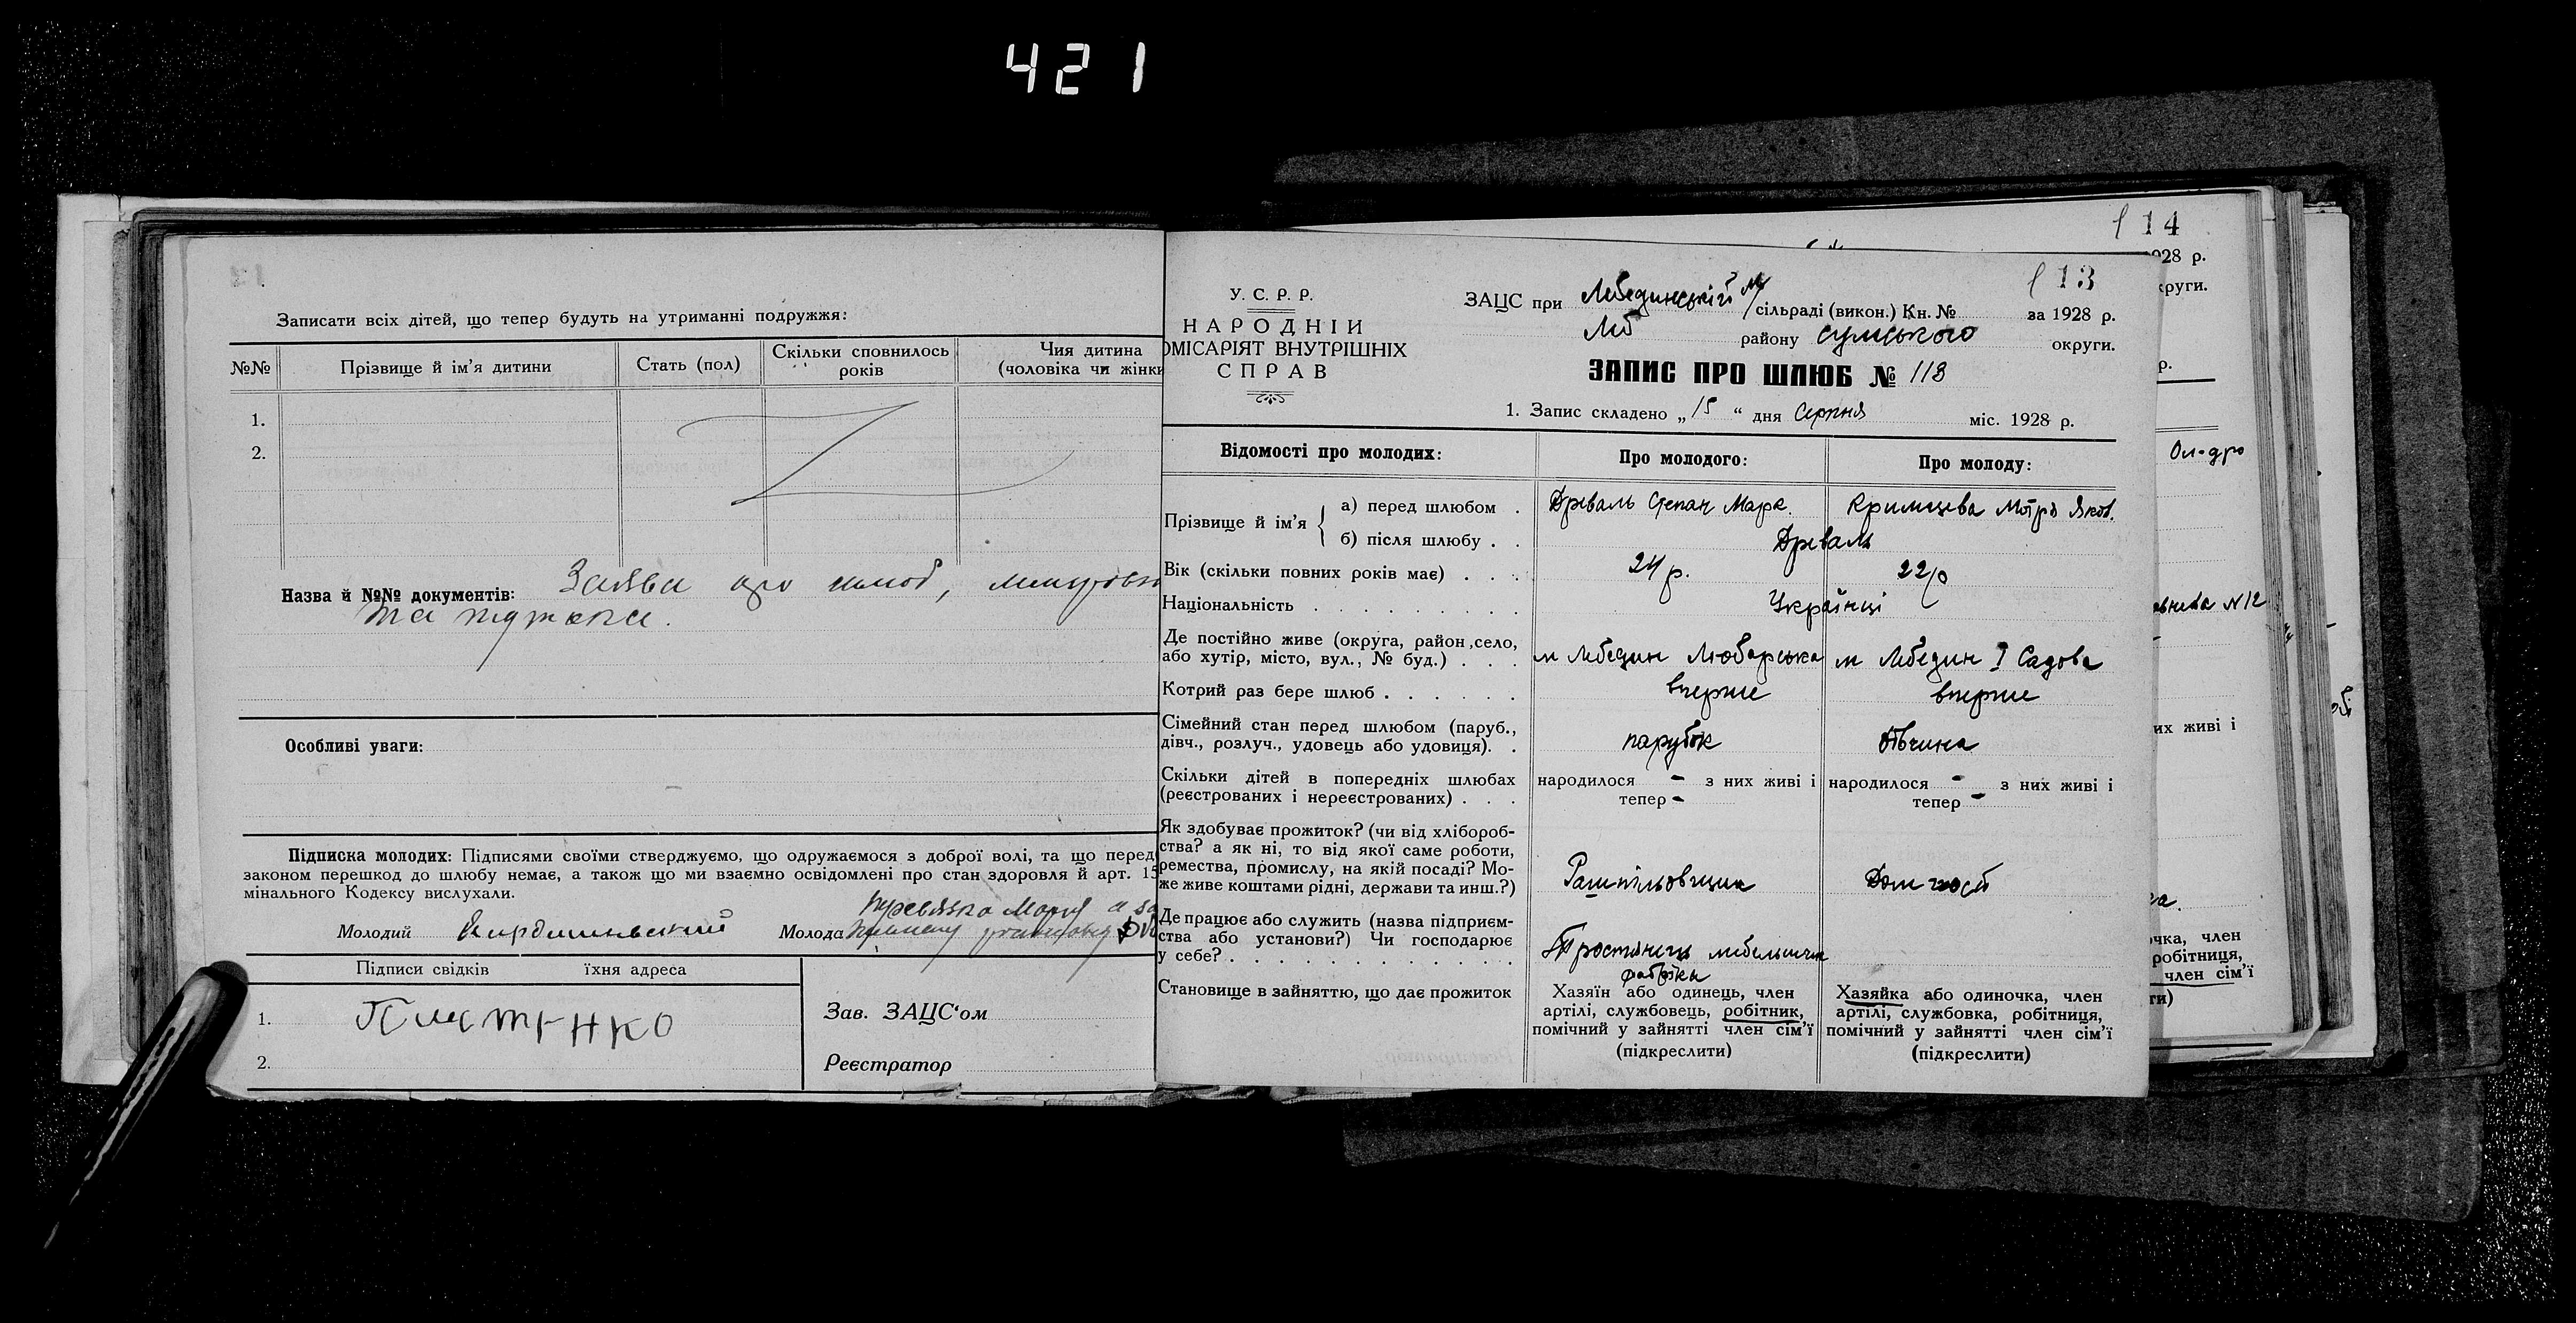 421
Записати всіх дітей, що тепер будуть на утриманні подружжя:
№№ Прізвище й ім'я дитини Стать (пол) Скільки сповнилось років Чия дитина (чоловіка чи жінки
1.
2.
Назва й №№ документів: Заява про шлюб,
та підписка.
Особливі уваги:
Підписка молодих: Підписями своїми стверджуємо, що одружаємося з доброї волі, та що перед
законом перешкод до шлюбу немає, а також що ми взаємно освідомлені про стан здоровля й арт. 15
мінального Кодексу вислухали.
Молодий Молода
Підписи свідків їхня адреса
1.
2.
Зав. ЗАЦС'ом
Реєстратор
14
13
У. С. Р. Р.
НАРОДНІЙ
ОМІСАРІЯТ ВНУТРІШНІХ
СПРАВ
ЗАЦС при Лебединській м/сільраді (викон.) Кн. № за 1928 р.
Леб району Сумського округи.
ЗАПИС ПРО ШЛЮБ № 113
1. Запис складено „15“ дня Серпня міс. 1928 р.
Відомості про молодих: Про молодого: Про молоду:
Прізвище й ім'я
а) перед шлюбом . Древаль Степан Марк. Яков.
б) після шлюбу . . Древаль
Вік (скільки повних років має) . . . 24 р. 22 р
Національність . . . . . . . . . Українці
Де постійно живе (округа, район, село,
або хутір, місто, вул., № буд.) . . . м Лебедин Любарська м Лебедин I Садова
Котрий раз бере шлюб . . . . . . вперше вперше
Сімейний стан перед шлюбом (паруб.,
дівч., розлуч., удовець або удовиця). . парубок дівчина
Скільки дітей в попередніх шлюбах народилося - з них живі і народилося - з них живі і
(реєстрованих і нереєстрованих) . . . тепер - тепер -
Як здобуває прожиток? (чи від хлібороб-
ства? а як ні, то від якої саме роботи,
ремества, промислу, на якій посаді? Мо-
же живе коштами рідні, держави та инш.?) Рашпільовщик Дом госп
Де працює або служить (назва підприєм-
ства або установи?) Чи господарює
у себе? . . . . . . . . . . . . Тростянець мебельшча
фабрика
Становище в зайняттю, що дає прожиток
Хазяїн або одинець, член
артілі, службовець, робітник,
помічний у зайнятті член сім'ї
(підкреслити)
Хазяйка або одиночка, член
артілі, службовка, робітниця,
помічний у зайнятті член сім'ї
(підкреслити)
1928 р.
округи.
р.
Ол-дро
№12
их живі і
очка, член
робітниця,
член сім'ї
ти)